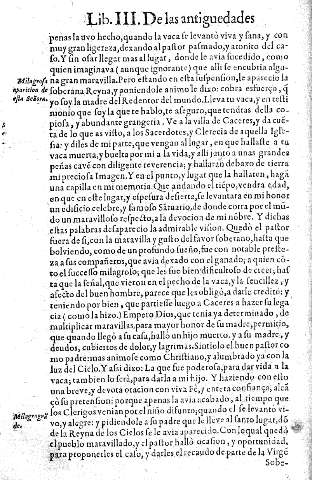 Lib. III. De las antiguedades
penas la uvo hecho, quando la vaca se levantó viva y sana, y con
muy gran ligereza, dexando al pastor pasmado, y atonito del ca-
so. Y sin osar llegar mas al lugar, donde le avia sucedido, como
quien imaginava (aunque ignorante) que alli se encubria algu-
na gran maravilla. Pero estando en esta suspension, le aparecio la
Milagrosa
aparicion de
esta Señora.
Soberana Reyna, y poniendole animo le dixo: cobra esfuerço, q̃
yo soy la madre del Redentor del mundo. Lleva tu vaca, y en testi
monio que soy la que te hablo, te asseguro, que tendras della co-
piosa, y abundante grangeria. Ve a la villa de Caceres, y da cuẽ-
ta de lo que as visto, a los Sacerdotes, y Clerecia de aquella Igle-
sia: y diles de mi parte, que vengan al lugar, en que hallaste a tu
vaca muerta, y buelta por mi a la vida, y alli junto a unas grandes
peñas cavẽ con diligente reverencia; y hallaràn debaxo de tierra
mi preciosa Imagen. Y en el punto, y lugar que la hallaren, hagã
una capilla en mi memoria. Que andando el tiẽpo, vendra edad,
en que en este lugar, y espesura desierta, se levantara en mi honor
un edificio celebre, y famoso Sãtuario, de donde corra por el mũ-
do un maravilloso respecto, a la devocion de mi nõbre. Y dichas
estas palabras desaparecio la admirable vision. Quedò el pastor
fuera de si, con la maravilla y gusto del favor soberano, hasta que
bolviendo, como de un profundo sueño, fue con notable preste-
za a sus compañeros, que avia dexado con el ganado; a quien cõ-
to el successo milagroso; que les fue bien dificultoso de creer, has
ta que la señal, que vieron en el pecho de la vaca, y la sencillez, y
afecto del buen hombre, parece que les obligò, a darle credito: y
teniendo por bien, que partiesse luego a Caceres a hazer su lega
cia (como la hizo.) Empero Dios, que tenia ya determinado, de
multiplicar maravillas, para mayor honor de su madre, permitio,
que quando llegò a su casa, hallò un hijo muerto, y a su madre, y
deudos, cubiertos de dolor, y lagrimas. Sintiolo el buen pastor co
mo padre: mas animose como Christiano, y alumbrado ya con la
luz del Cielo. Y assi dixo: La que fue poderosa, para dar vida a la
vaca; tambien lo serà, para darla a mi hijo. Y haziendo con ello
una breve, y devota oracion con viva Fè, y entera confiança, alcã
çò su pretension: porque apenas la avia acabado, al tiempo que
Milagro grã
de.
los Clerigos venian por el niño difunto, quando el se levantò vi-
vo, y alegre: y pidiendole a su padre que le lleve al santo lugar, dõ
de la Reyna de los Cielos se le avia aparecido. Con lo qual quedò
el pueblo maravillado, y el pastor hallò ocasion, y oportunidad,
para proponerles el caso, y darles el recaudo de parte de la Virgẽ
Sobe-